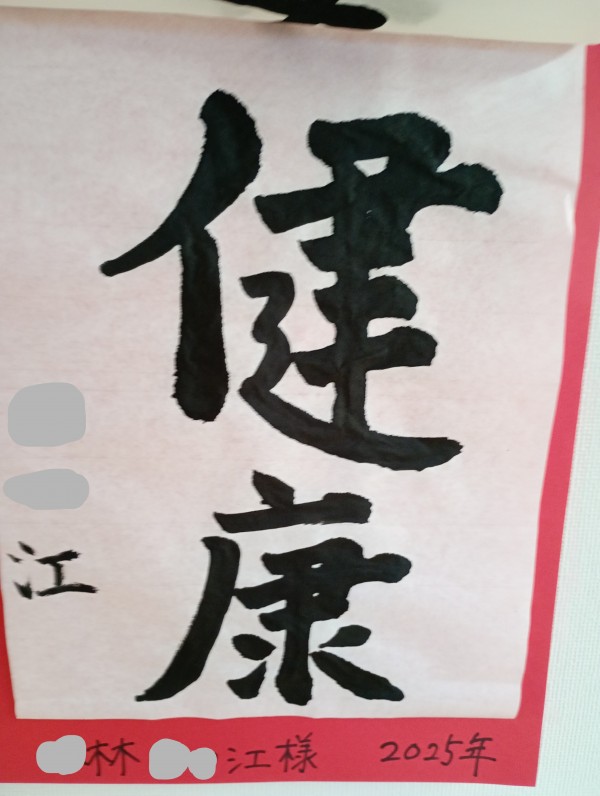 健康
江
林 江様 2025年